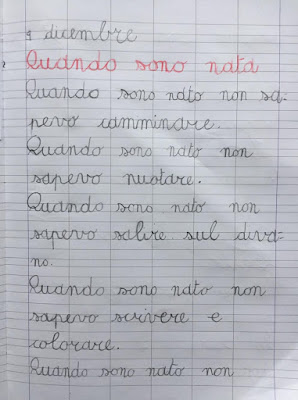 9 dicembre
Quando sono nata
Quando sono nato non sa-
pevo camminare.
Quando sono nato non
sapevo nuotare.
Quando sono nato non
sapevo salire sul diva-
no.
Quando sono nato non
sapevo scrivere e
colorare.
Quando sono nato non